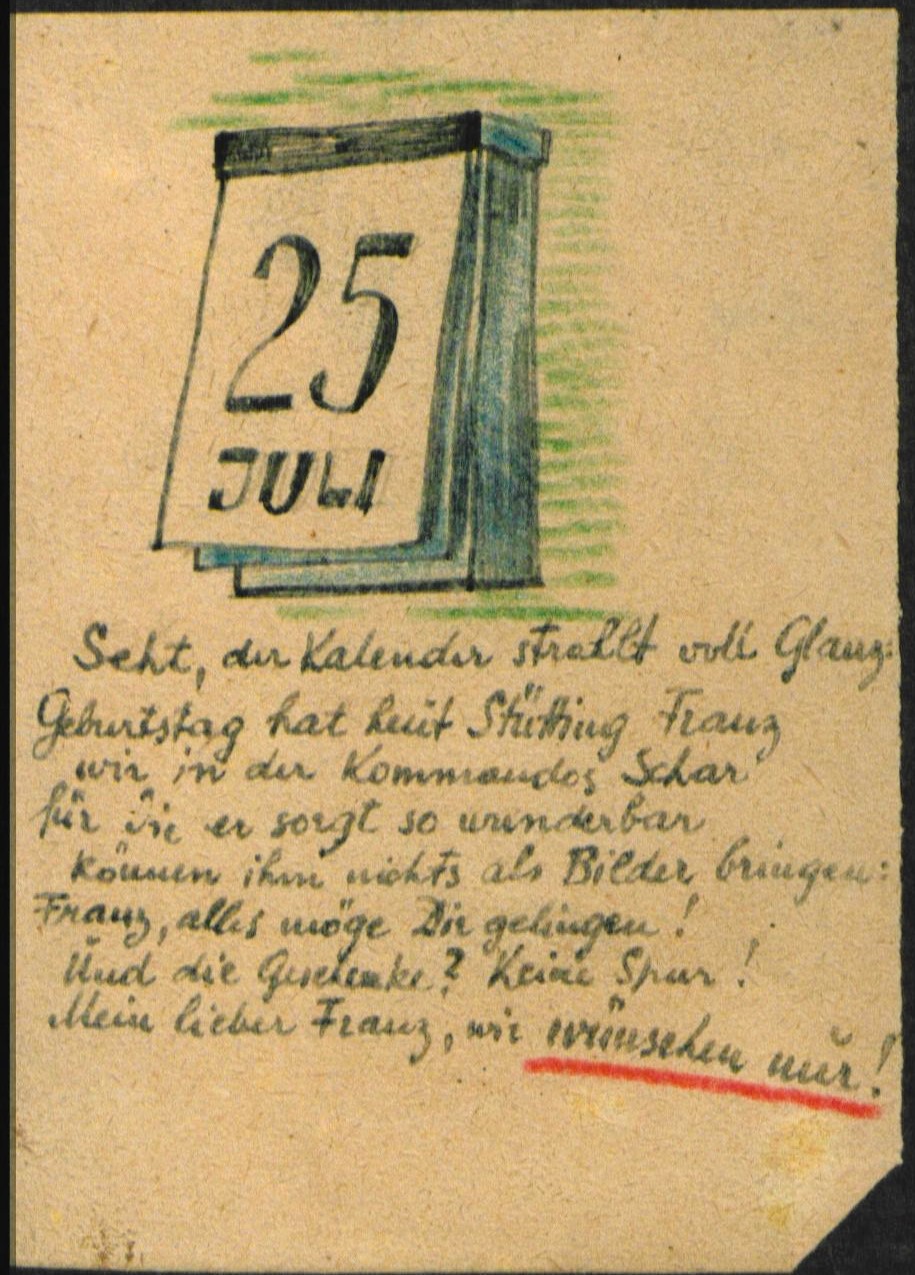 25
JULI
Seht, der Kalender strahlt voll Glanz:
Geburtstag hat heut Stütting Franz
wir in der Kommandos Schar
für die er sorgt so wunderbar
können ihm nichts als Bilder bringen:
Franz, alles möge Dir gelingen!
Und die Geschenke? Keine Spur!
Mein lieber Franz, wir wünschen nur!